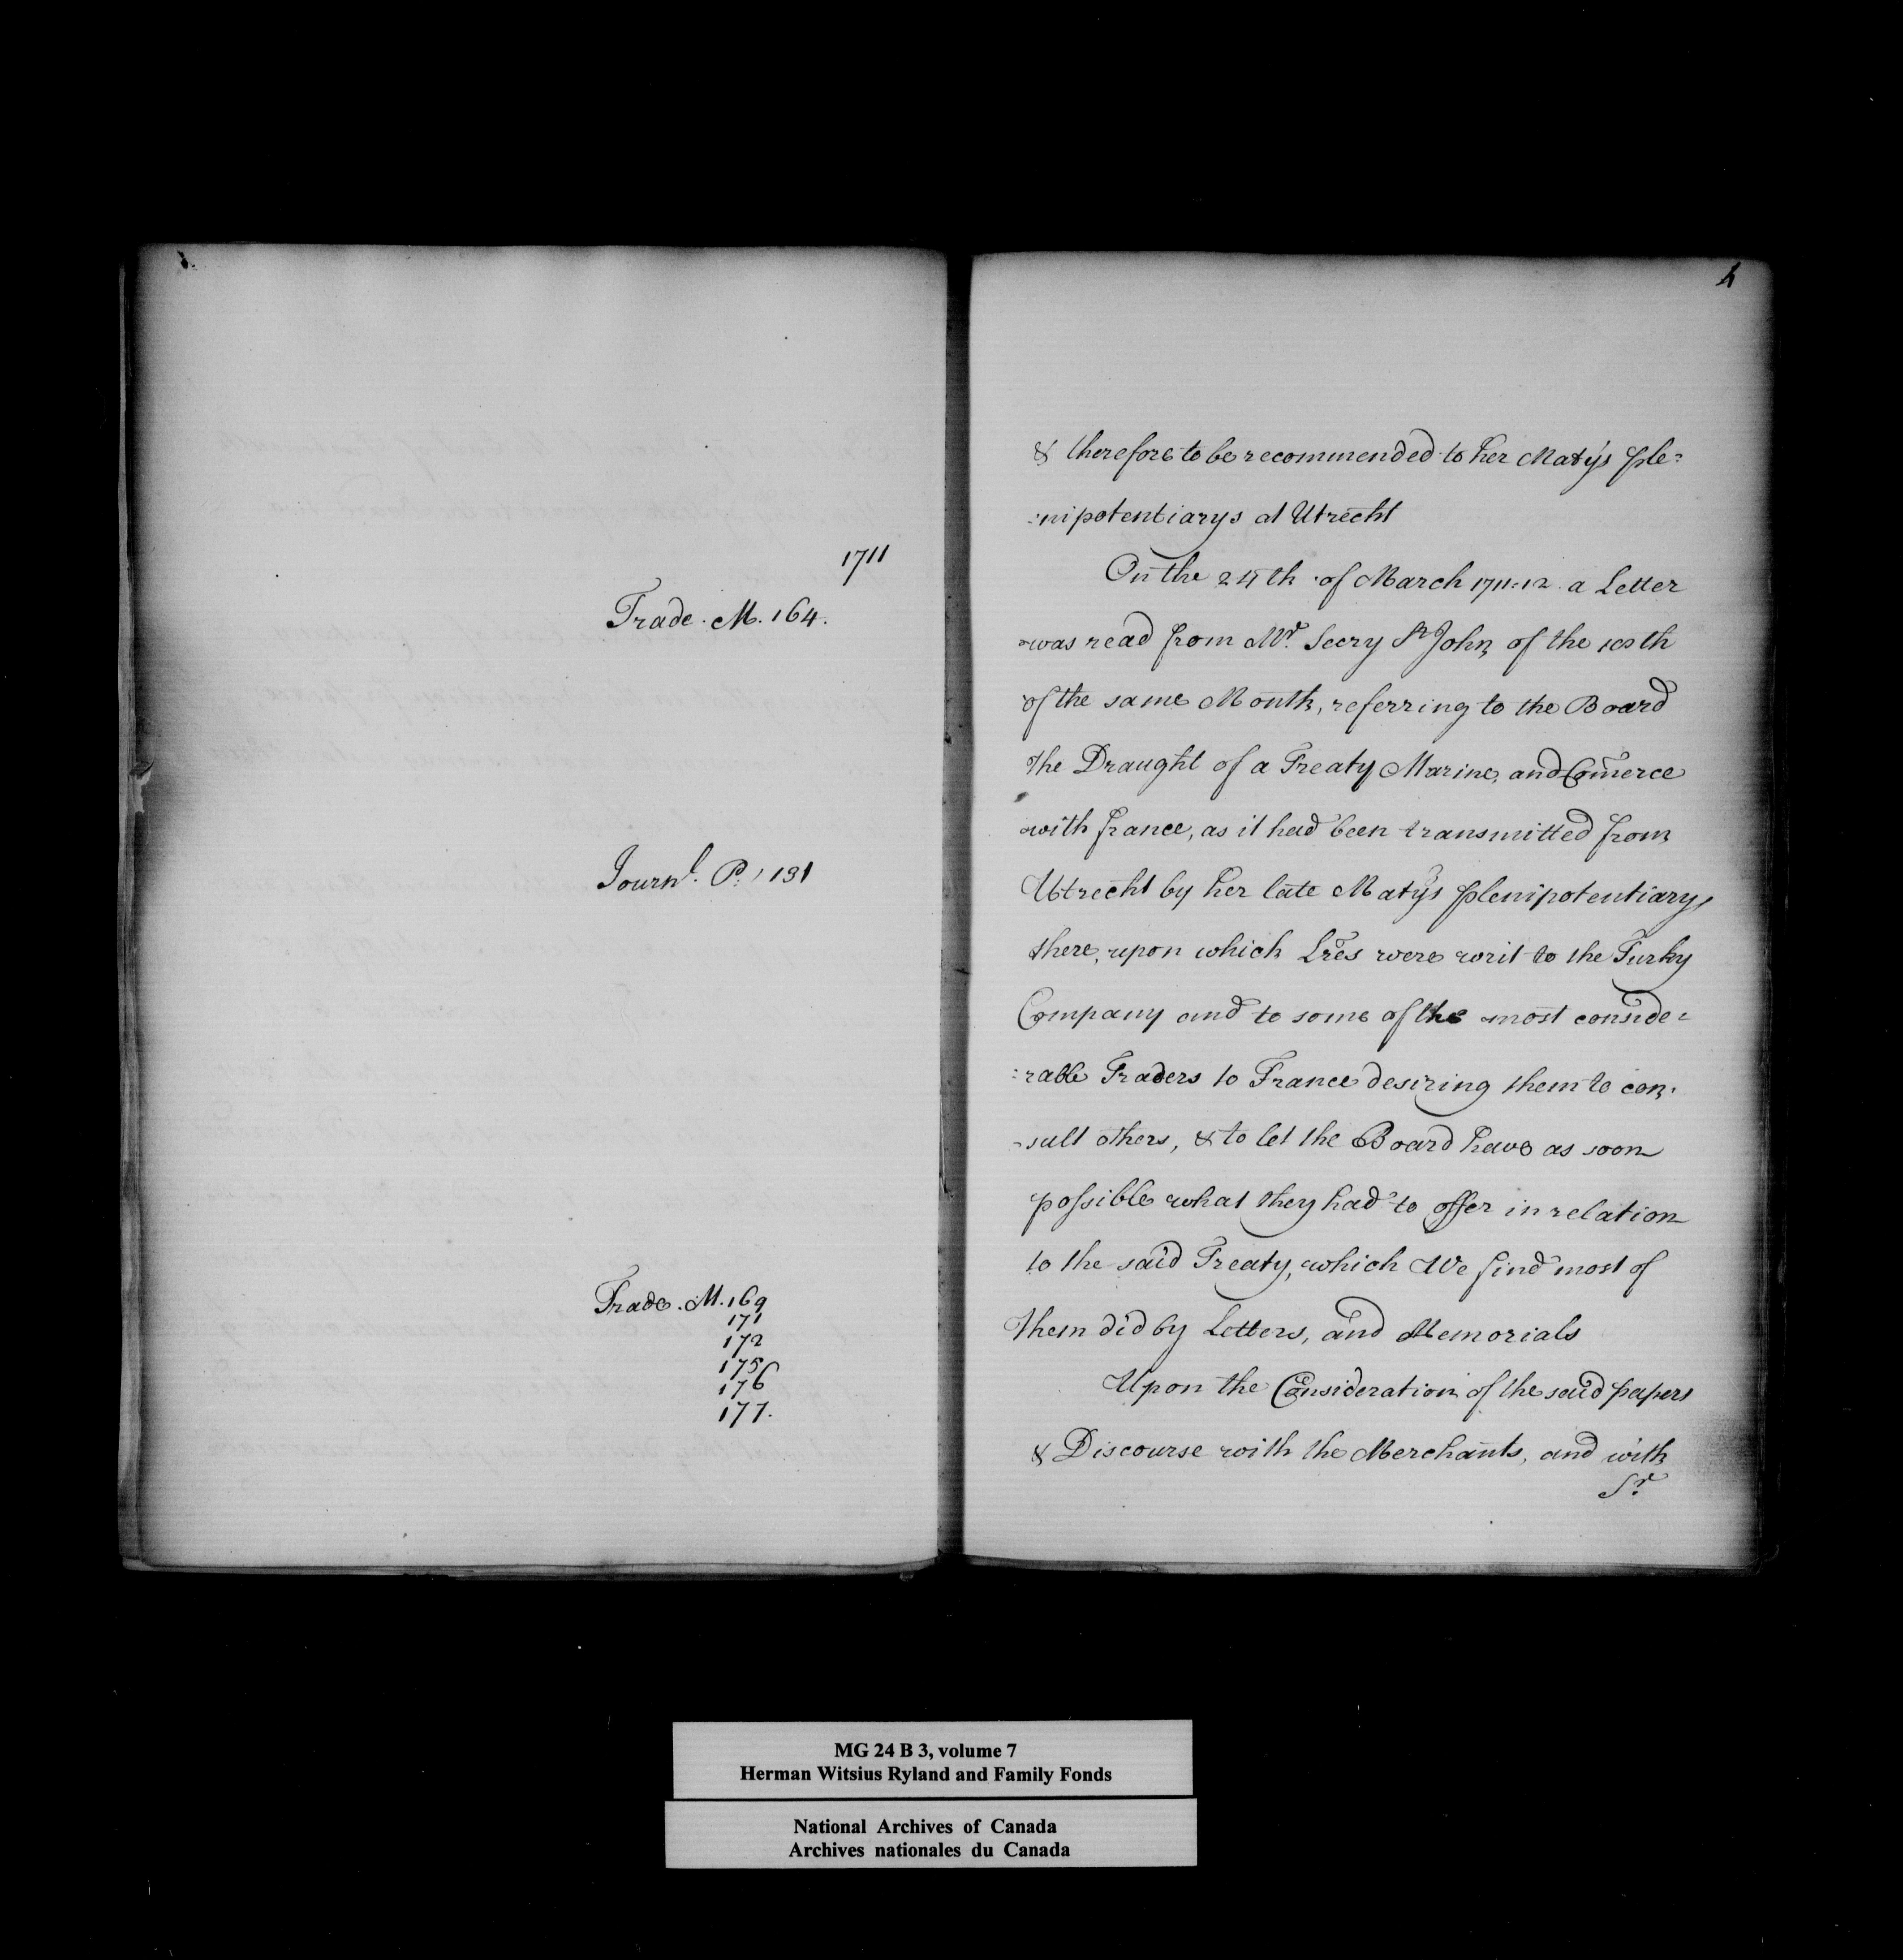 1711
Trade. M. 164.
Journl. P: 131
Trade. M. 169
171
172
175
176
177.
4
& therefore to be recommended to her Matys ple=
=nipotentiarys at Utrecht
On the 24th of March 1711=12 a Letter
was read from Mr. Secry St John of the
of the same Month, referring to the Board
the Draught of a Treaty Marine, and Com̃erce
with france, as it had been transmitted from
Utrecht by her late Matys plenipotentiarys
there, upon which Lrẽs were writ to the Turky
Company and to some of the most conside=
=rable Traders to France desiring them to con=
=sult others, & to let the Board have as soon
possible what they had to offer in relation
to the said Treaty, which We find most of
them did by Letters, and Memorials
Upon the Consideration of the said papers
& Discourse with the Merchants, and with
Sr.
MG 24 B 3, volume 7
Herman Witsius Ryland and Family Fonds
National Archives of Canada
Archives nationales du Canada